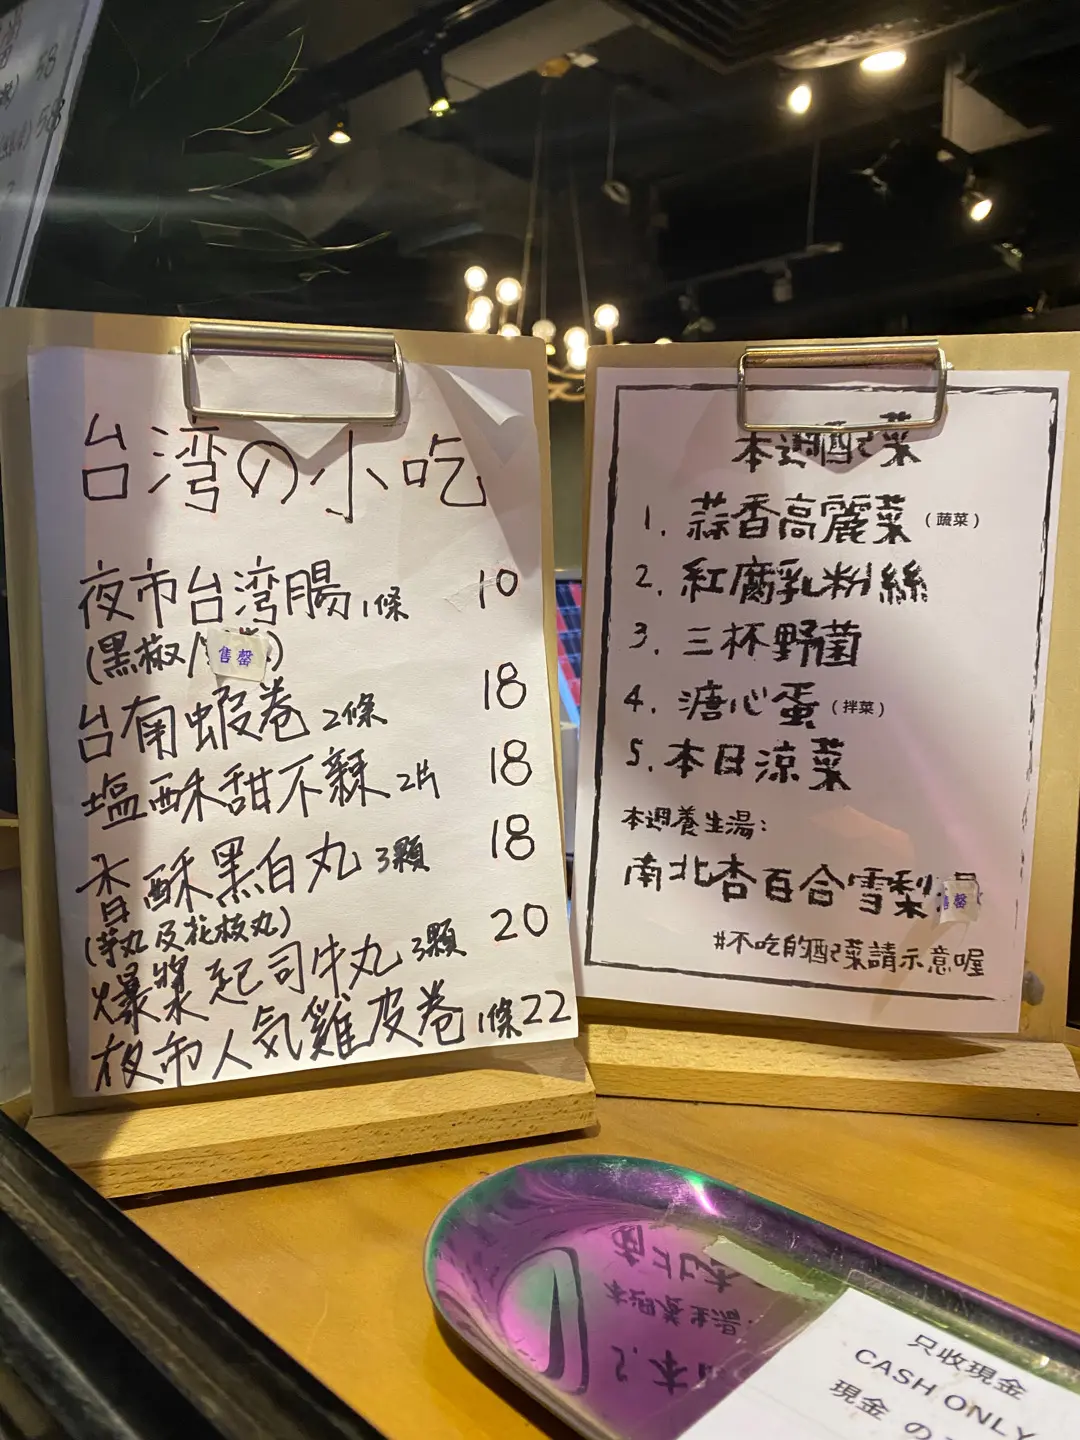 58
58
台湾の小吃
夜市台湾腸1條 10
(黒椒/售罄)
台南蝦卷2條 18
塩酥甜不辣2片 18
香酥黑白丸3顆 18
(芋丸及花枝丸)
爆漿起司牛丸3顆 20
夜市人気雞皮卷1條22
本週配菜
1. 蒜香高麗菜(蔬菜)
2. 紅腐乳粉絲
3. 三杯野菌
4. 溏心蛋(拌菜)
5. 本日涼菜
本週養生湯:
南北杏百合雪梨
售罄
#不吃的配菜請示意喔
只收現金
CASH ONLY
現金 の